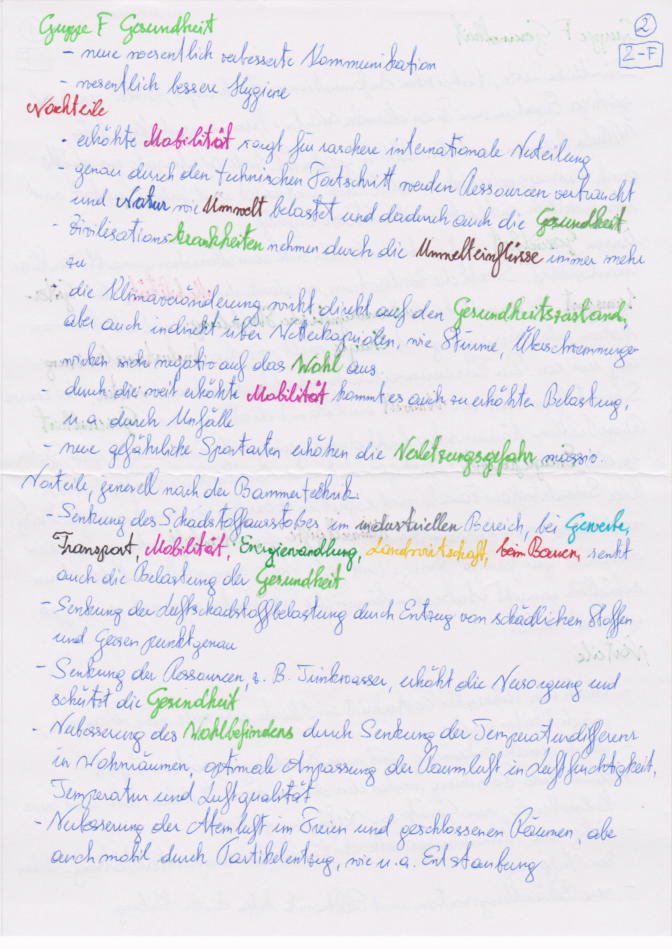 Gruppe F Gesundheit
2
2-F
- neue wesentlich verbesserte Kommunikation
- wesentlich bessere Hygiene
Nachteile
- erhöhte Mobilität sorgt für raschere internationale Verteilung
- genau durch den technischen Fortschritt werden Ressourcen verbraucht
und Natur wie Umwelt belastet und dadurch auch die Gesundheit
- Zivilisationskrankheiten nehmen durch die Umwelteinflüsse immer mehr
zu
- die Klimaveränderung wirkt direkt auf den Gesundheitszustand,
aber auch indirekt über Wetterkapriolen, wie Stürme, Überschwemmungen
wirken sich negativ auf das Wohl aus.
- durch die weit erhöhte Mobilität kommt es auch zu erhöhter Belastung,
u.a. durch Unfälle
- neue gefährliche Sportarten erhöhen die Verletzungsgefahr massiv.
Vorteile, generell nach der Bammertechnik
- Senkung des Schadstoffausstoßes im industriellen Bereich, bei Gewerbe,
Transport, Mobilität, Energiewandlung, Landwirtschaft, beim Bauen, senkt
auch die Belastung der Gesundheit
- Senkung der Luftschadstoffbelastung durch Entzug von schädlichen Stoffen
und Gasen punktgenau
- Senkung der Ressourcen, z. B. Trinkwasser, erhöht die Versorgung und
schützt die Gesindheit
- Verbesserung des Wohlbefindens durch Senkung der Temperaturdifferenz
in Wohnräumen, optimale Anpassung der Raumluft in Luftfeuchtigkeit,
Temperatur und Luftqualität
- Verbesserung der Atemluft im Freien und geschlossenen Räumen, aber
auch mobil durch Partikelentzug, wie u.a. Entstaubung